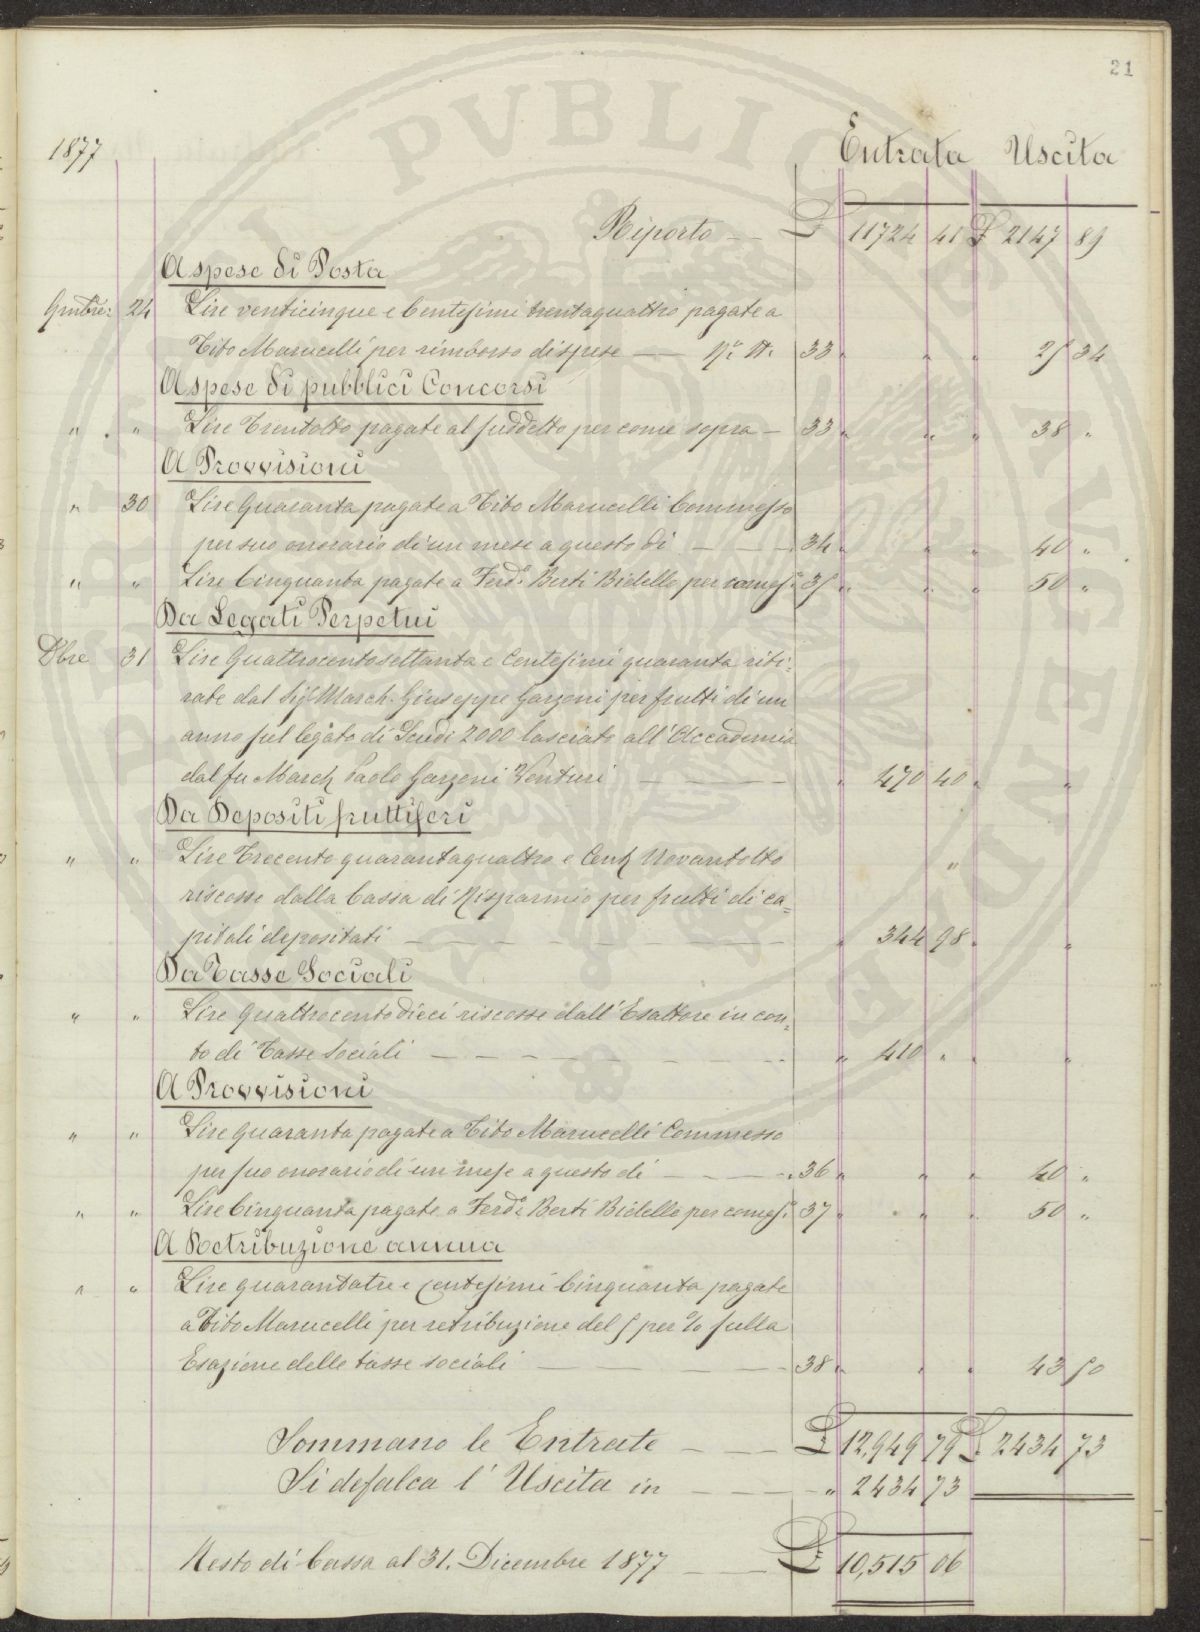 21
1877 Entrata Uscita
Riporto £ 11724 41 £ 2147 89
A spese di Posta
24 Lire venticinque e Centesimi trentaquattro pagate a
Tito Marucelli per rimborso di spese 33 " " " 25 34
A spese di pubblici Concorsi
" " Lire Trentotto pagate al suddetto per come sopra 33 " " " 38 "
A Provvisioni
" 30 Lire Quaranta pagate a Tito Marucelli Commesso
per suo onorario di un mese a questo dì 34 " " " 40 "
" " Lire Cinquanta pagate a Ferd.o Berti Bidello per come s.a 35 " " " 50 "
Da Legati Perpetui
Dbre 31 Lire Quattrocentosettanta e Centesimi quaranta riti=
rate dal Sig. March. Giuseppe Garzoni per frutti di un
anno sul legato di Scudi 2000 lasciato all'Accademia
dal fu March. Paolo Garzoni Venturi " 470 40 " "
Da Depositi fruttiferi
" " Lire Trecento quarantaquattro e Cent. Novantotto "
riscosse dalla Cassa di Risparmio per frutti di ca=
pitali depositati " 344 98 " "
Da Tasse Sociali
" " Lire Quattrocentodieci riscosse dall'Esattore in con=
to di Tasse Sociali " 410 " " "
A Provvisioni
" " Lire Quaranta pagate a Tito Marucelli Commesso
per suo onorario di un mese a questo dì 36 " " " 40 "
" " Lire Cinquanta pagate a Ferd.o Berti Bidello per come s.a 37 " " " 50 "
A Retribuzione annua
" " Lire quarantatre e Centesimi Cinquanta pagate
a Tito Marucelli per retribuzione del 5 per % sulla
Esazione delle tasse sociali 38 " " " 43 50
Sommano le Entrate £ 12,949 79 £ 2434 73
Si defalca l'Uscita in " 2434 73
Resto di Cassa al 31. Dicembre 1877 £ 10,515 06